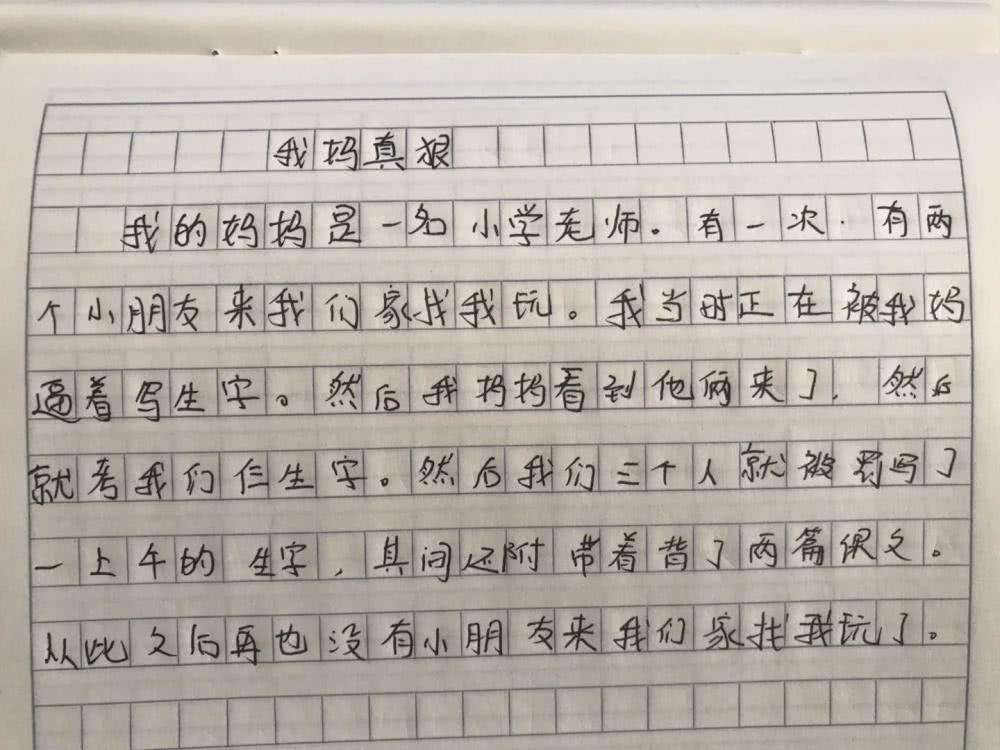 我妈真狠
我的妈妈是一名小学老师。有一次.有两
个小朋友来我们家找我玩。我当时正在被我妈
逼着写生字。然后我妈妈看到他俩来了.然后
就考我们仨生字。然后我们三个人就被罚写了
一上午的生字,其间还附带着背了两篇课文。
从此之后再也没有小朋友来我们家找我玩了。